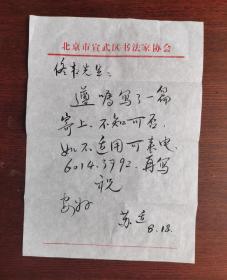 北京市宣武区书法家协会
修武先生:
遵嘱写了一篇
寄上,不知可否,
如不适用可来电
6014.3992.再写
祝
安好
苏适
8.18.